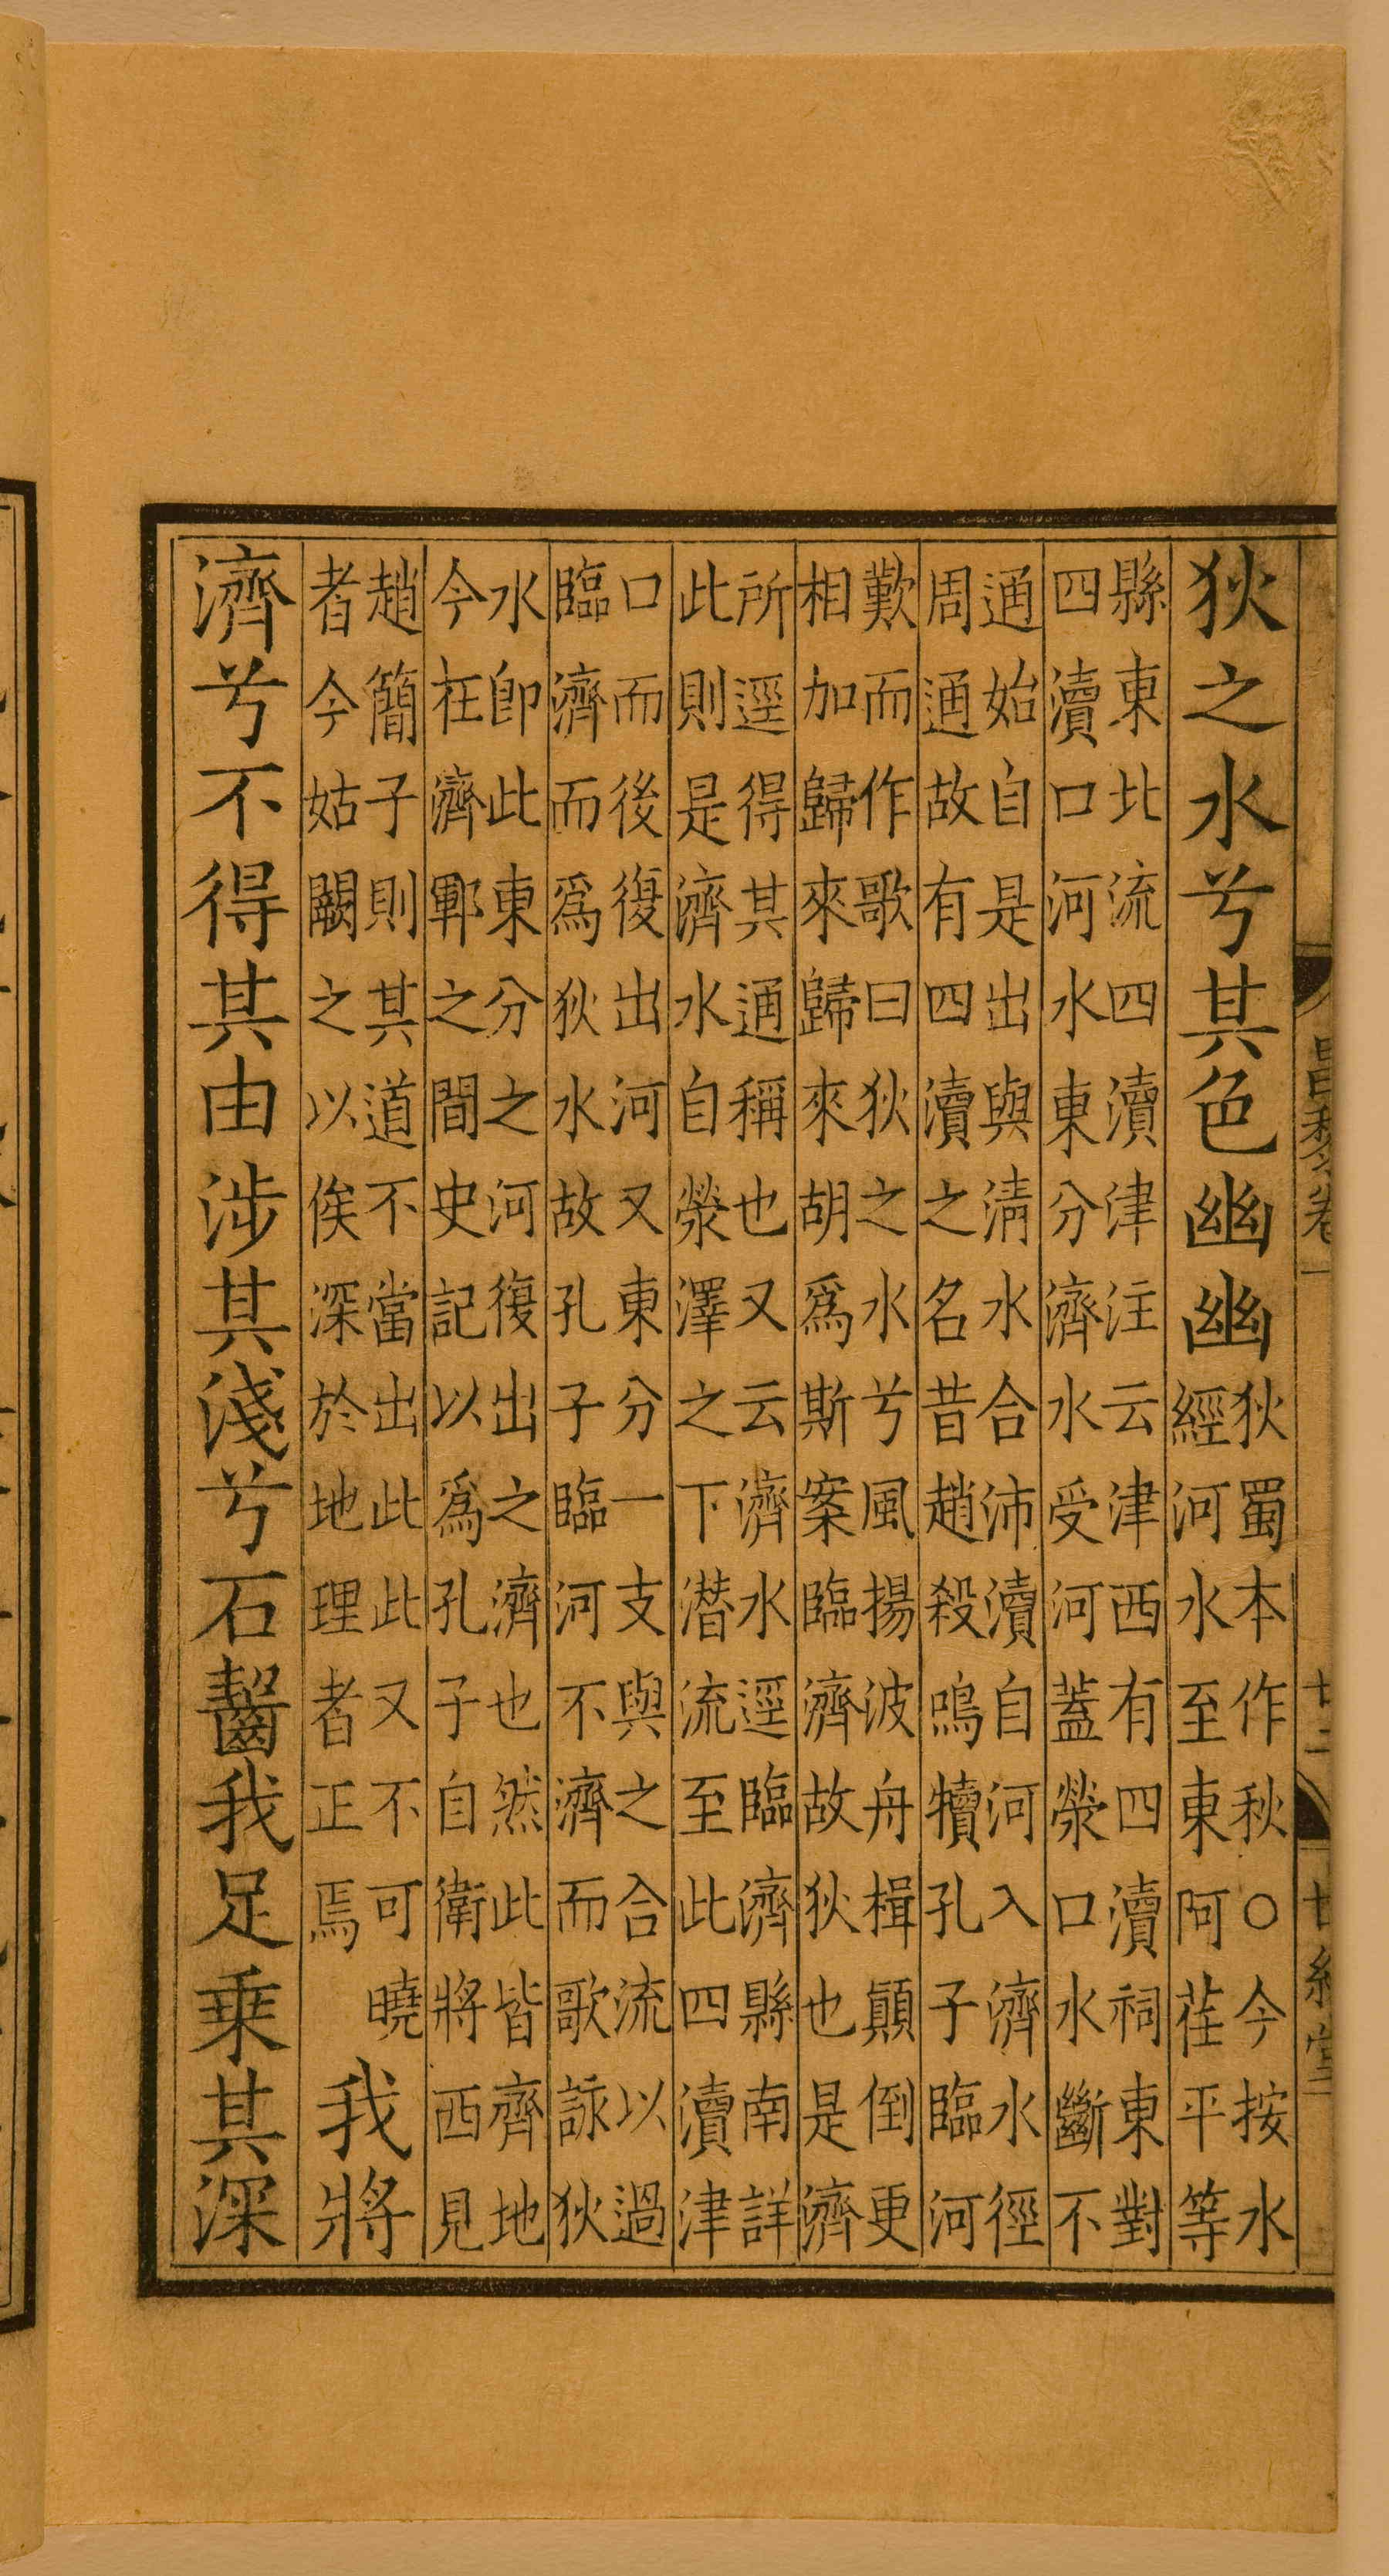 狄之水兮其色幽幽
狄蜀本作秋○今按水
經河水至東阿荏平等
縣東北流四瀆津注云津西有四瀆祠東對
四瀆口河水東分濟水受河蓋滎口水斷不
通始自是出與清水合沛瀆自河入濟水徑
周通故有四瀆之名昔趙殺鳴犢孔子臨河
歎而作歌曰狄之水兮風揚波舟楫顛倒更
相加歸來歸來胡爲斯案臨濟故狄也是濟
所逕得其通稱也又云濟水逕臨濟縣南詳
此則是濟水自滎澤之下潛流至此四瀆津
口而後復出河又東分一支與之合流以過
臨濟而爲狄水故孔子臨河不濟而歌詠狄
水卽此東分之河復出之濟也然此皆齊地
今在濟鄆之間史記以爲孔子自衛將西見
趙簡子則其道不當出此此又不可曉
者今姑闕之以俟深於地理者正焉
我將
濟兮不得其由涉其淺兮石齧我足乘其深
昌黎卷一
廿二